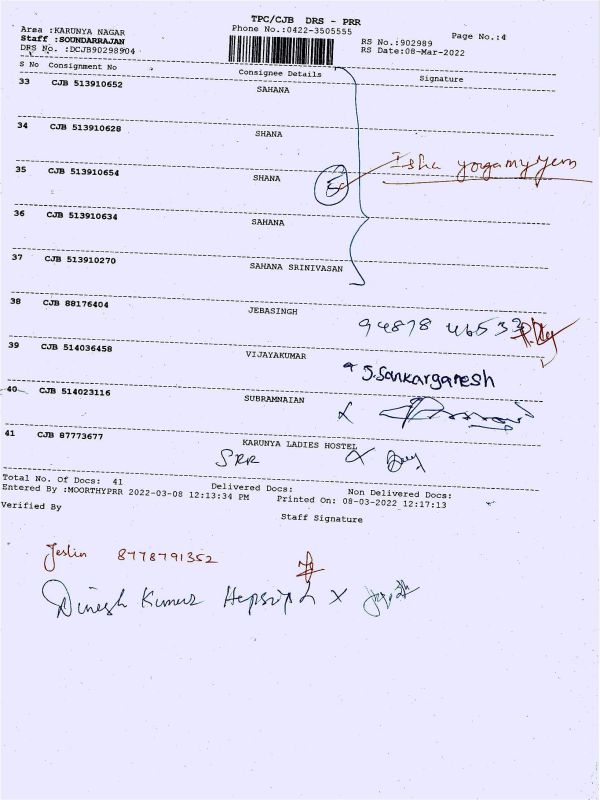 TPC/CJB DRS - PRR
Area :KARUNYA NAGAR
Phone No.:0422-3505555
Page No.:4
Staff :SOUNDARRAJAN
RS No.:902989
DRS No. :DCJB90298904
RS Date:08-Mar-2022
S No Consignment No Consignee Details Signature
33 CJB 513910652 SAHANA
34 CJB 513910628 SHANA
35 CJB 513910654 SHANA Isha
36 CJB 513910634 SAHANA
37 CJB 513910270 SAHANA SRINIVASAN
38 CJB 88176404 JEBASINGH 94878 46533
39 CJB 514036458 VIJAYAKUMAR S.Sankarganesh
40 CJB 514023116 SUBRAMNAIAN
41 CJB 87773677 KARUNYA LADIES HOSTEL
SRR
Total No. Of Docs: 41 Delivered Docs: Non Delivered Docs:
Entered By :MOORTHYPRR 2022-03-08 12:13:34 PM Printed On: 08-03-2022 12:17:13
Verified By
Staff Signature
Jeslin 8778791352
Dinesh Kumar